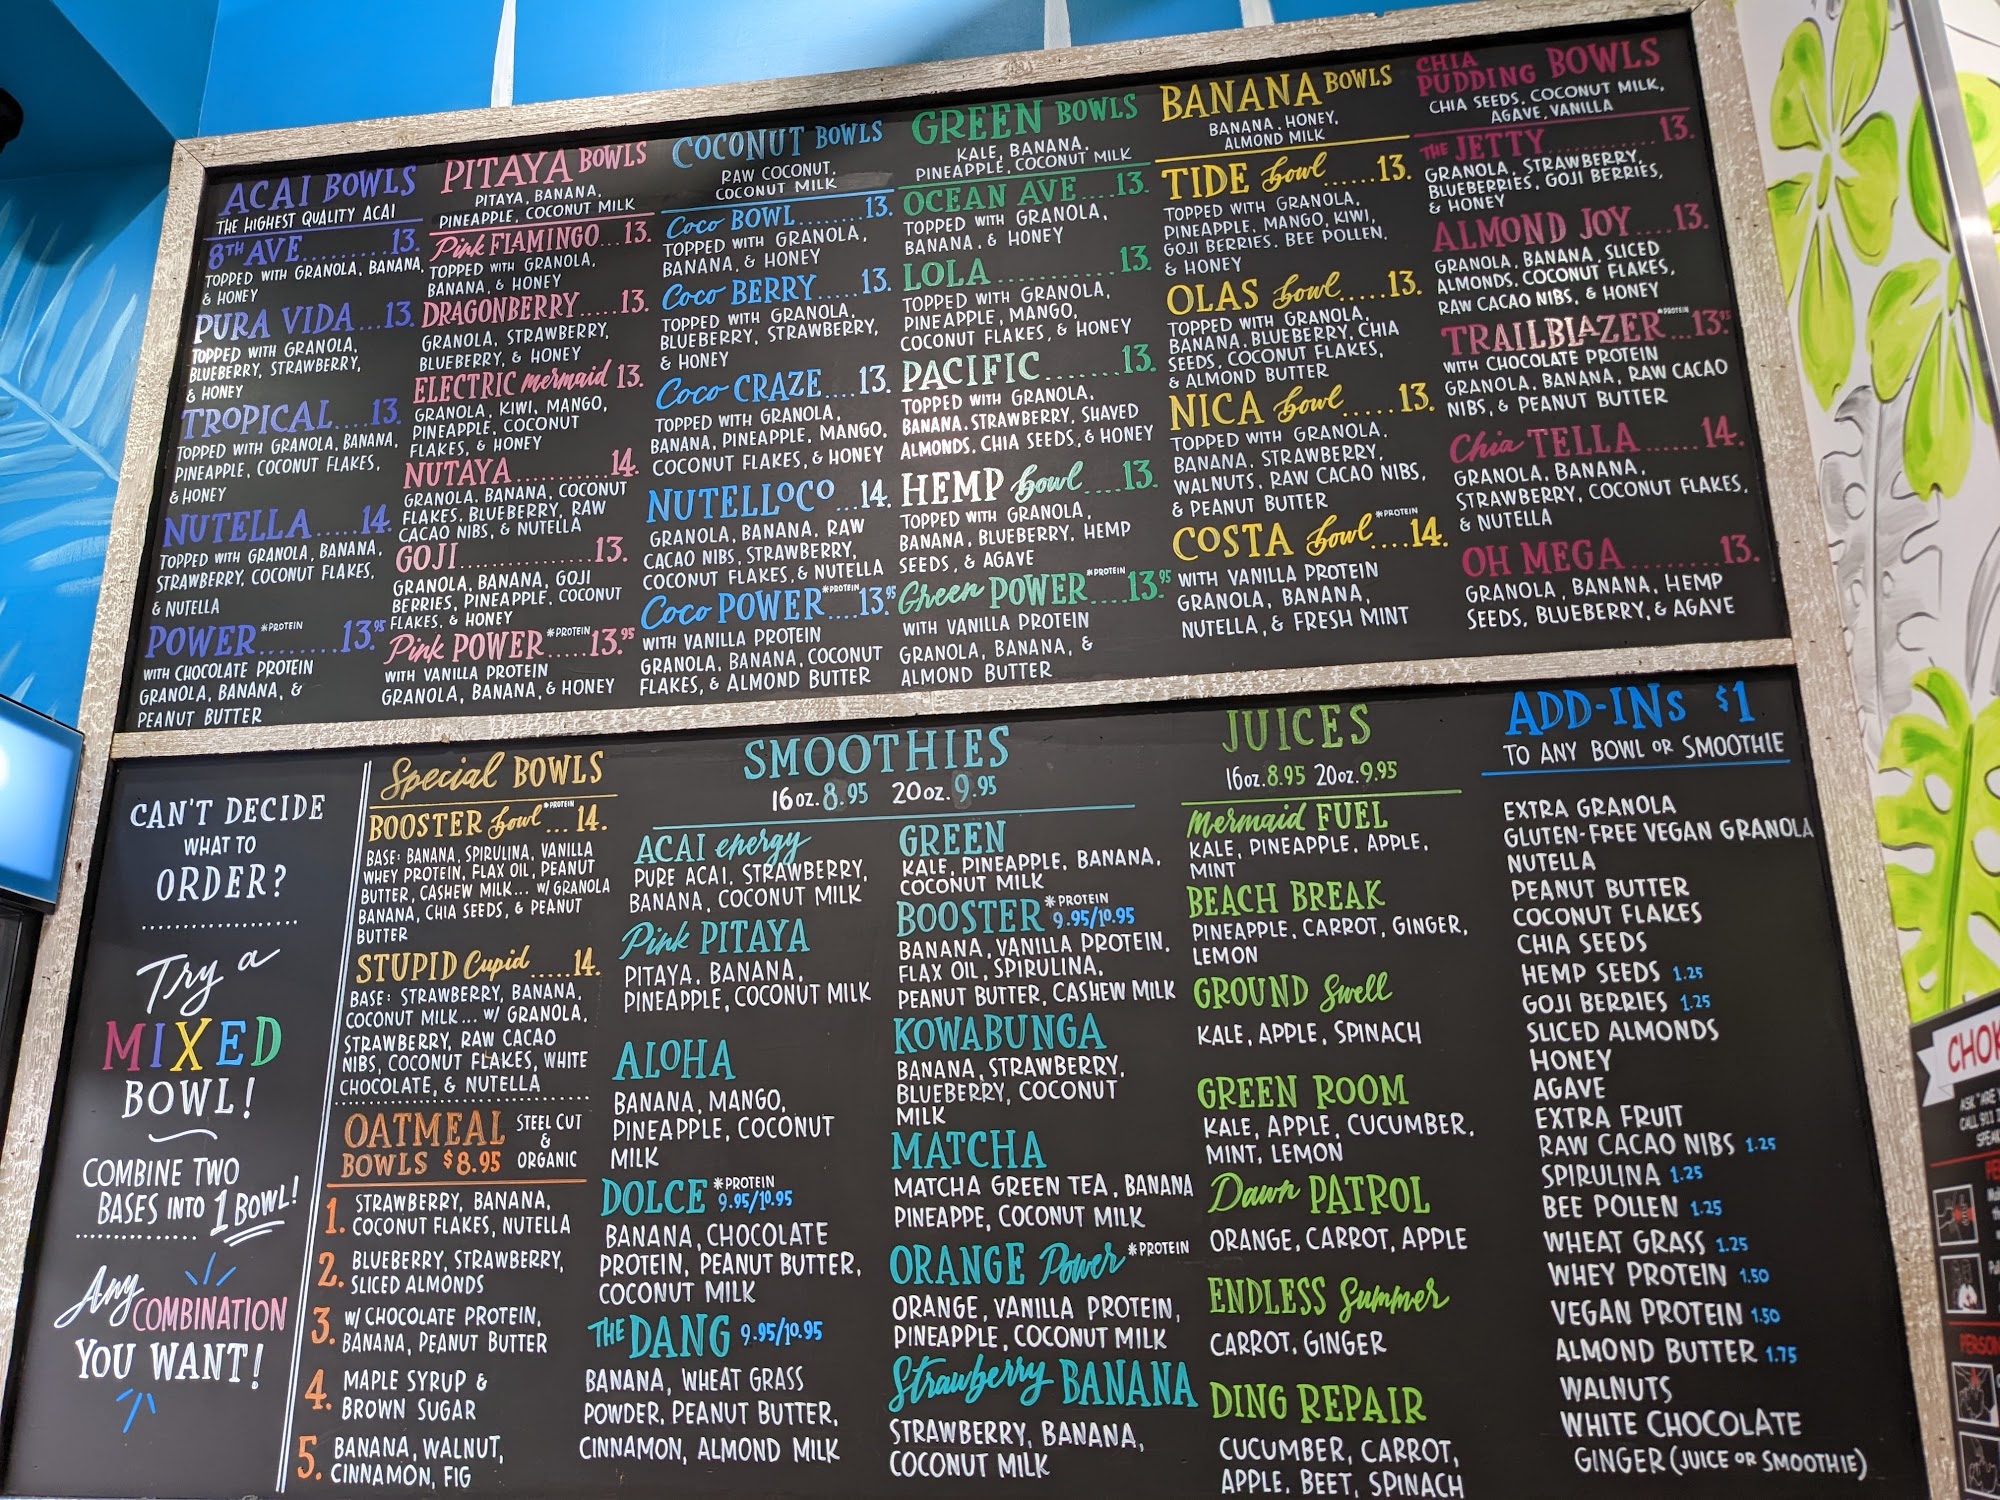 ACAI BOWLS
THE HIGHEST QUALITY ACAI
8TH AVE..........13.
TOPPED WITH GRANOLA, BANANA,
& HONEY
PURA VIDA...13.
TOPPED WITH GRANOLA,
BLUEBERRY, STRAWBERRY,
HONEY
TROPICAL....13.
TOPPED WITH GRANOLA, BANANA,
PINEAPPLE, COCONUT FLAKES,
& HONEY
NUTELLA.....14.
TOPPED WITH GRANOLA, BANANA,
STRAWBERRY, COCONUT FLAKES,
& NUTELLA
POWER *PROTEIN........13.95
WITH CHOCOLATE PROTEIN
GRANOLA, BANANA, &
PEANUT BUTTER
PITAYA BOWLS
PITAYA, BANANA,
PINEAPPLE, COCONUT MILK
Pink FLAMINGO...13.
TOPPED WITH GRANOLA,
BANANA, & HONEY
DRAGONBERRY....13.
GRANOLA, STRAWBERRY,
BLUEBERRY, & HONEY
ELECTRIC mermaid 13.
GRANOLA, KIWI, MANGO,
PINEAPPLE, COCONUT
FLAKES, & HONEY
NUTAYA..........14.
GRANOLA, BANANA, COCONUT
FLAKES, BLUEBERRY, RAW
CACAO NIBS, & NUTELLA
GOJI..............13.
GRANOLA, BANANA, GOJI
BERRIES, PINEAPPLE, COCONUT
FLAKES, & HONEY
Pink POWER *PROTEIN.....13.95
WITH VANILLA PROTEIN
GRANOLA, BANANA, & HONEY
COCONUT BOWLS
RAW COCONUT,
COCONUT MILK
Coco BOWL.........13.
TOPPED WITH GRANOLA,
BANANA, & HONEY
Coco BERRY.....13.
TOPPED WITH GRANOLA,
BLUEBERRY, STRAWBERRY,
& HONEY
Coco CRAZE....13.
TOPPED WITH GRANOLA,
BANANA, PINEAPPLE, MANGO,
COCONUT FLAKES, & HONEY
NUTELLOCO...14.
GRANOLA, BANANA, RAW
CACAO NIBS, STRAWBERRY,
COCONUT FLAKES, & NUTELLA
Coco POWER *PROTEIN....13.95
WITH VANILLA PROTEIN
GRANOLA, BANANA, COCONUT
FLAKES, & ALMOND BUTTER
GREEN BOWLS
KALE, BANANA,
PINEAPPLE, COCONUT MILK
OCEAN AVE....13.
TOPPED WITH GRANOLA,
BANANA, & HONEY
LOLA............13.
TOPPED WITH GRANOLA,
PINEAPPLE, MANGO,
COCONUT FLAKES, & HONEY
PACIFIC........13.
TOPPED WITH GRANOLA,
BANANA, STRAWBERRY, SHAVED
ALMONDS, CHIA SEEDS, & HONEY
HEMP bowl....13.
TOPPED WITH GRANOLA,
BANANA, BLUEBERRY, HEMP
SEEDS, & AGAVE
Green POWER *PROTEIN....13.95
WITH VANILLA PROTEIN
GRANOLA, BANANA, &
ALMOND BUTTER
BANANA BOWLS
BANANA, HONEY,
ALMOND MILK
TIDE bowl......13.
TOPPED WITH GRANOLA,
PINEAPPLE, MANGO, KIWI,
GOJI BERRIES, BEE POLLEN,
& HONEY
OLAS bowl.....13.
TOPPED WITH GRANOLA,
BANANA, BLUEBERRY, CHIA
SEEDS, COCONUT FLAKES,
& ALMOND BUTTER
NICA bowl.....13.
TOPPED WITH GRANOLA,
BANANA, STRAWBERRY,
WALNUTS, RAW CACAO NIBS,
& PEANUT BUTTER
COSTA bowl *PROTEIN....14.
WITH VANILLA PROTEIN
GRANOLA, BANANA,
NUTELLA, & FRESH MINT
CHIA PUDDING BOWLS
CHIA SEEDS, COCONUT MILK,
AGAVE, VANILLA
THE JETTY............13.
GRANOLA, STRAWBERRY,
BLUEBERRIES, GOJI BERRIES,
& HONEY
ALMOND JOY....13.
GRANOLA, BANANA, SLICED
ALMONDS, COCONUT FLAKES,
RAW CACAO NIBS, & HONEY
TRAILBLAZER *PROTEIN...13.95
WITH CHOCOLATE PROTEIN
GRANOLA, BANANA, RAW CACAO
NIBS, & PEANUT BUTTER
Chia TELLA......14.
GRANOLA, BANANA,
STRAWBERRY, COCONUT FLAKES,
& NUTELLA
OH MEGA.........13.
GRANOLA, BANANA, HEMP
SEEDS, BLUEBERRY, & AGAVE
CAN'T DECIDE
WHAT TO
ORDER?
Try a
MIXED
BOWL!
COMBINE TWO
BASES INTO 1 BOWL!
Any COMBINATION
YOU WANT!
Special BOWLS
BOOSTER bowl *PROTEIN... 14.
BASE: BANANA, SPIRULINA, VANILLA
WHEY PROTEIN, FLAX OIL, PEANUT
BUTTER, CASHEW MILK... W/ GRANOLA
BANANA, CHIA SEEDS, & PEANUT
BUTTER
STUPID Cupid.....14.
BASE: STRAWBERRY, BANANA,
COCONUT MILK... W/ GRANOLA,
STRAWBERRY, RAW CACAO
NIBS, COCONUT FLAKES, WHITE
CHOCOLATE, & NUTELLA
OATMEAL BOWLS $8.95
STEEL CUT
&
ORGANIC
1. STRAWBERRY, BANANA,
COCONUT FLAKES, NUTELLA
2. BLUEBERRY, STRAWBERRY,
SLICED ALMONDS
3. W/ CHOCOLATE PROTEIN,
BANANA, PEANUT BUTTER
4. MAPLE SYRUP &
BROWN SUGAR
5. BANANA, WALNUT,
CINNAMON, FIG
SMOOTHIES
16oz. 8.95 20oz. 9.95
ACAI energy
PURE ACAI, STRAWBERRY,
BANANA, COCONUT MILK
Pink PITAYA
PITAYA, BANANA,
PINEAPPLE, COCONUT MILK
ALOHA
BANANA, MANGO,
PINEAPPLE, COCONUT
MILK
DOLCE *PROTEIN 9.95/10.95
BANANA, CHOCOLATE
PROTEIN, PEANUT BUTTER,
COCONUT MILK
THE DANG 9.95/10.95
BANANA, WHEAT GRASS
POWDER, PEANUT BUTTER,
CINNAMON, ALMOND MILK
GREEN
KALE, PINEAPPLE, BANANA,
COCONUT MILK
BOOSTER *PROTEIN 9.95/10.95
BANANA, VANILLA PROTEIN,
FLAX OIL, SPIRULINA,
PEANUT BUTTER, CASHEW MILK
KOWABUNGA
BANANA, STRAWBERRY,
BLUEBERRY, COCONUT
MILK
MATCHA
MATCHA GREEN TEA, BANANA
PINEAPPE, COCONUT MILK
ORANGE Power *PROTEIN
ORANGE, VANILLA PROTEIN,
PINEAPPLE, COCONUT MILK
Strawberry BANANA
STRAWBERRY, BANANA,
COCONUT MILK
JUICES
16oz. 8.95 20oz. 9.95
Mermaid FUEL
KALE, PINEAPPLE, APPLE,
MINT
BEACH BREAK
PINEAPPLE, CARROT, GINGER,
LEMON
GROUND Swell
KALE, APPLE, SPINACH
GREEN ROOM
KALE, APPLE, CUCUMBER,
MINT, LEMON
Dawn PATROL
ORANGE, CARROT, APPLE
ENDLESS Summer
CARROT, GINGER
DING REPAIR
CUCUMBER, CARROT,
APPLE, BEET, SPINACH
ADD-INs $1
TO ANY BOWL OR SMOOTHIE
EXTRA GRANOLA
GLUTEN-FREE VEGAN GRANOLA
NUTELLA
PEANUT BUTTER
COCONUT FLAKES
CHIA SEEDS
HEMP SEEDS 1.25
GOJI BERRIES 1.25
SLICED ALMONDS
HONEY
AGAVE
EXTRA FRUIT
RAW CACAO NIBS 1.25
SPIRULINA 1.25
BEE POLLEN 1.25
WHEAT GRASS 1.25
WHEY PROTEIN 1.50
VEGAN PROTEIN 1.50
ALMOND BUTTER 1.75
WALNUTS
WHITE CHOCOLATE
GINGER (JUICE OR SMOOTHIE)
CALL 911